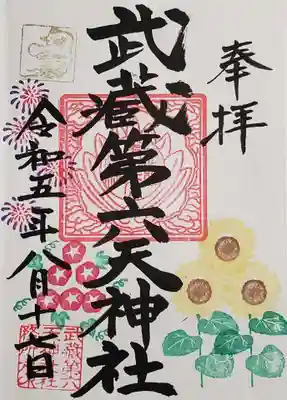 奉拝
武蔵第六天神社
令和五年八月十七日
武蔵第六